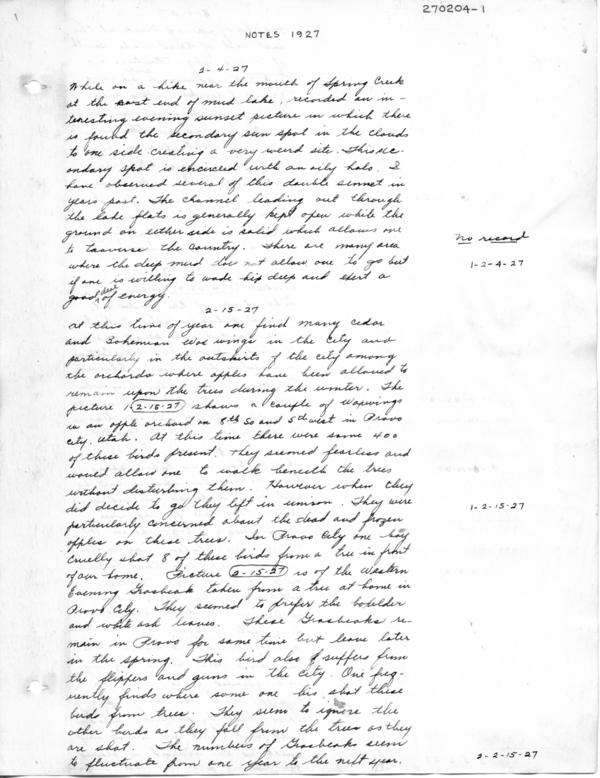 270204-1
NOTES 1927
2-4-27
While on a hike near the mouth of Spring Creek
at the east end of mud lake, recorded an in-
teresting evening sunset picture in which there
is found the secondary sun spot in the clouds
to one side creating a very weird site. This sec-
ondary spot is encircled with an oily halo. I
have observed several of this double sunset in
years past. The channel leading out through
the lake flats is generally kept open while the
ground on either side is solid which allows one
to traverse the country. There are many area
where the deep mud does not allow one to go but
if one is willing to wade hip deep and exert a
good deal of energy.
No record
1-2-4-27
2-15-27
At this time of year one find many cedar
and Bohemian wax wings in the city and
particularly in the outskirts of the city among
the orchards where apples have been allowed to
remain upon the trees during the winter. The
picture 1-2-15-27 shows a couple of waxwings
in an apple orchard on 8th So and 5th west in Provo
city, Utah. At this time there were some 400
of these birds present. They seemed fearless and
would allow one to walk beneath the trees
without disturbing them. However when they
did decide to go they left in unison. They were
particularly concerned about the dead and frozen
apples on these trees. In Provo City one boy
cruelly shot 8 of these birds from a tree in front
of our home. Picture 2-15-27 is of the Western
Evening Grosbeak taken from a tree at home in
Provo City. They seemed to prefer the boxelder
and white ash leaves. These Grosbeaks re-
main in Provo for some time but leave later
in the spring. This bird also suffers from
the flippers and guns in the city. One freq-
uently finds where some one his shot these
birds from trees. They seem to ignore the
other birds as they fall from the trees as they
are shot. The numbers of Grosbeaks seem
to fluctuate from one year to the next year.
1-2-15-27
2-2-15-27